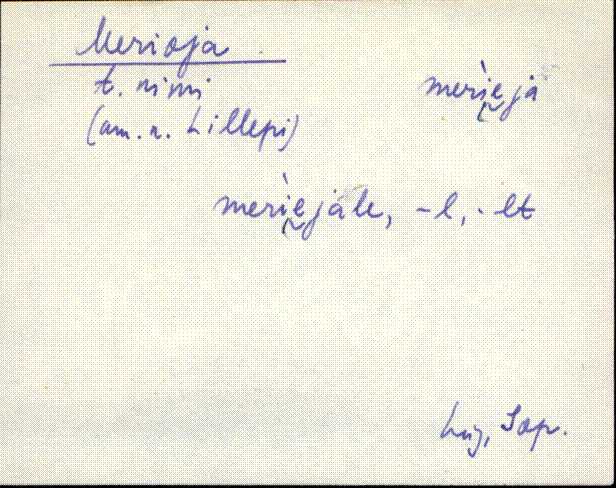 Merioja
t. nimi
(am. n. Lillepi)
meri̯eja
meri̯ejale, -l, -lt
Lüg, Sop.